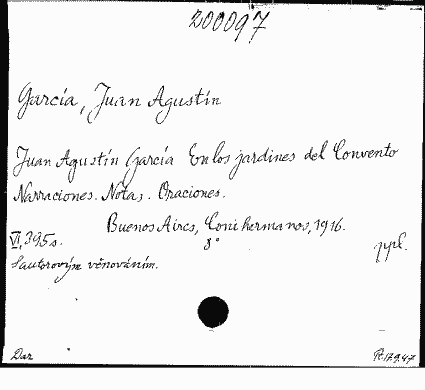 200097
García, Juan Agustín
Juan Agustín García En los jardines del Convento
Narraciones. Notas. Oraciones.
Buenos Aires, Coni hermanos, 1916.
VI, 395 s. 8°
ppl.
S autorovým věnováním.
Dar